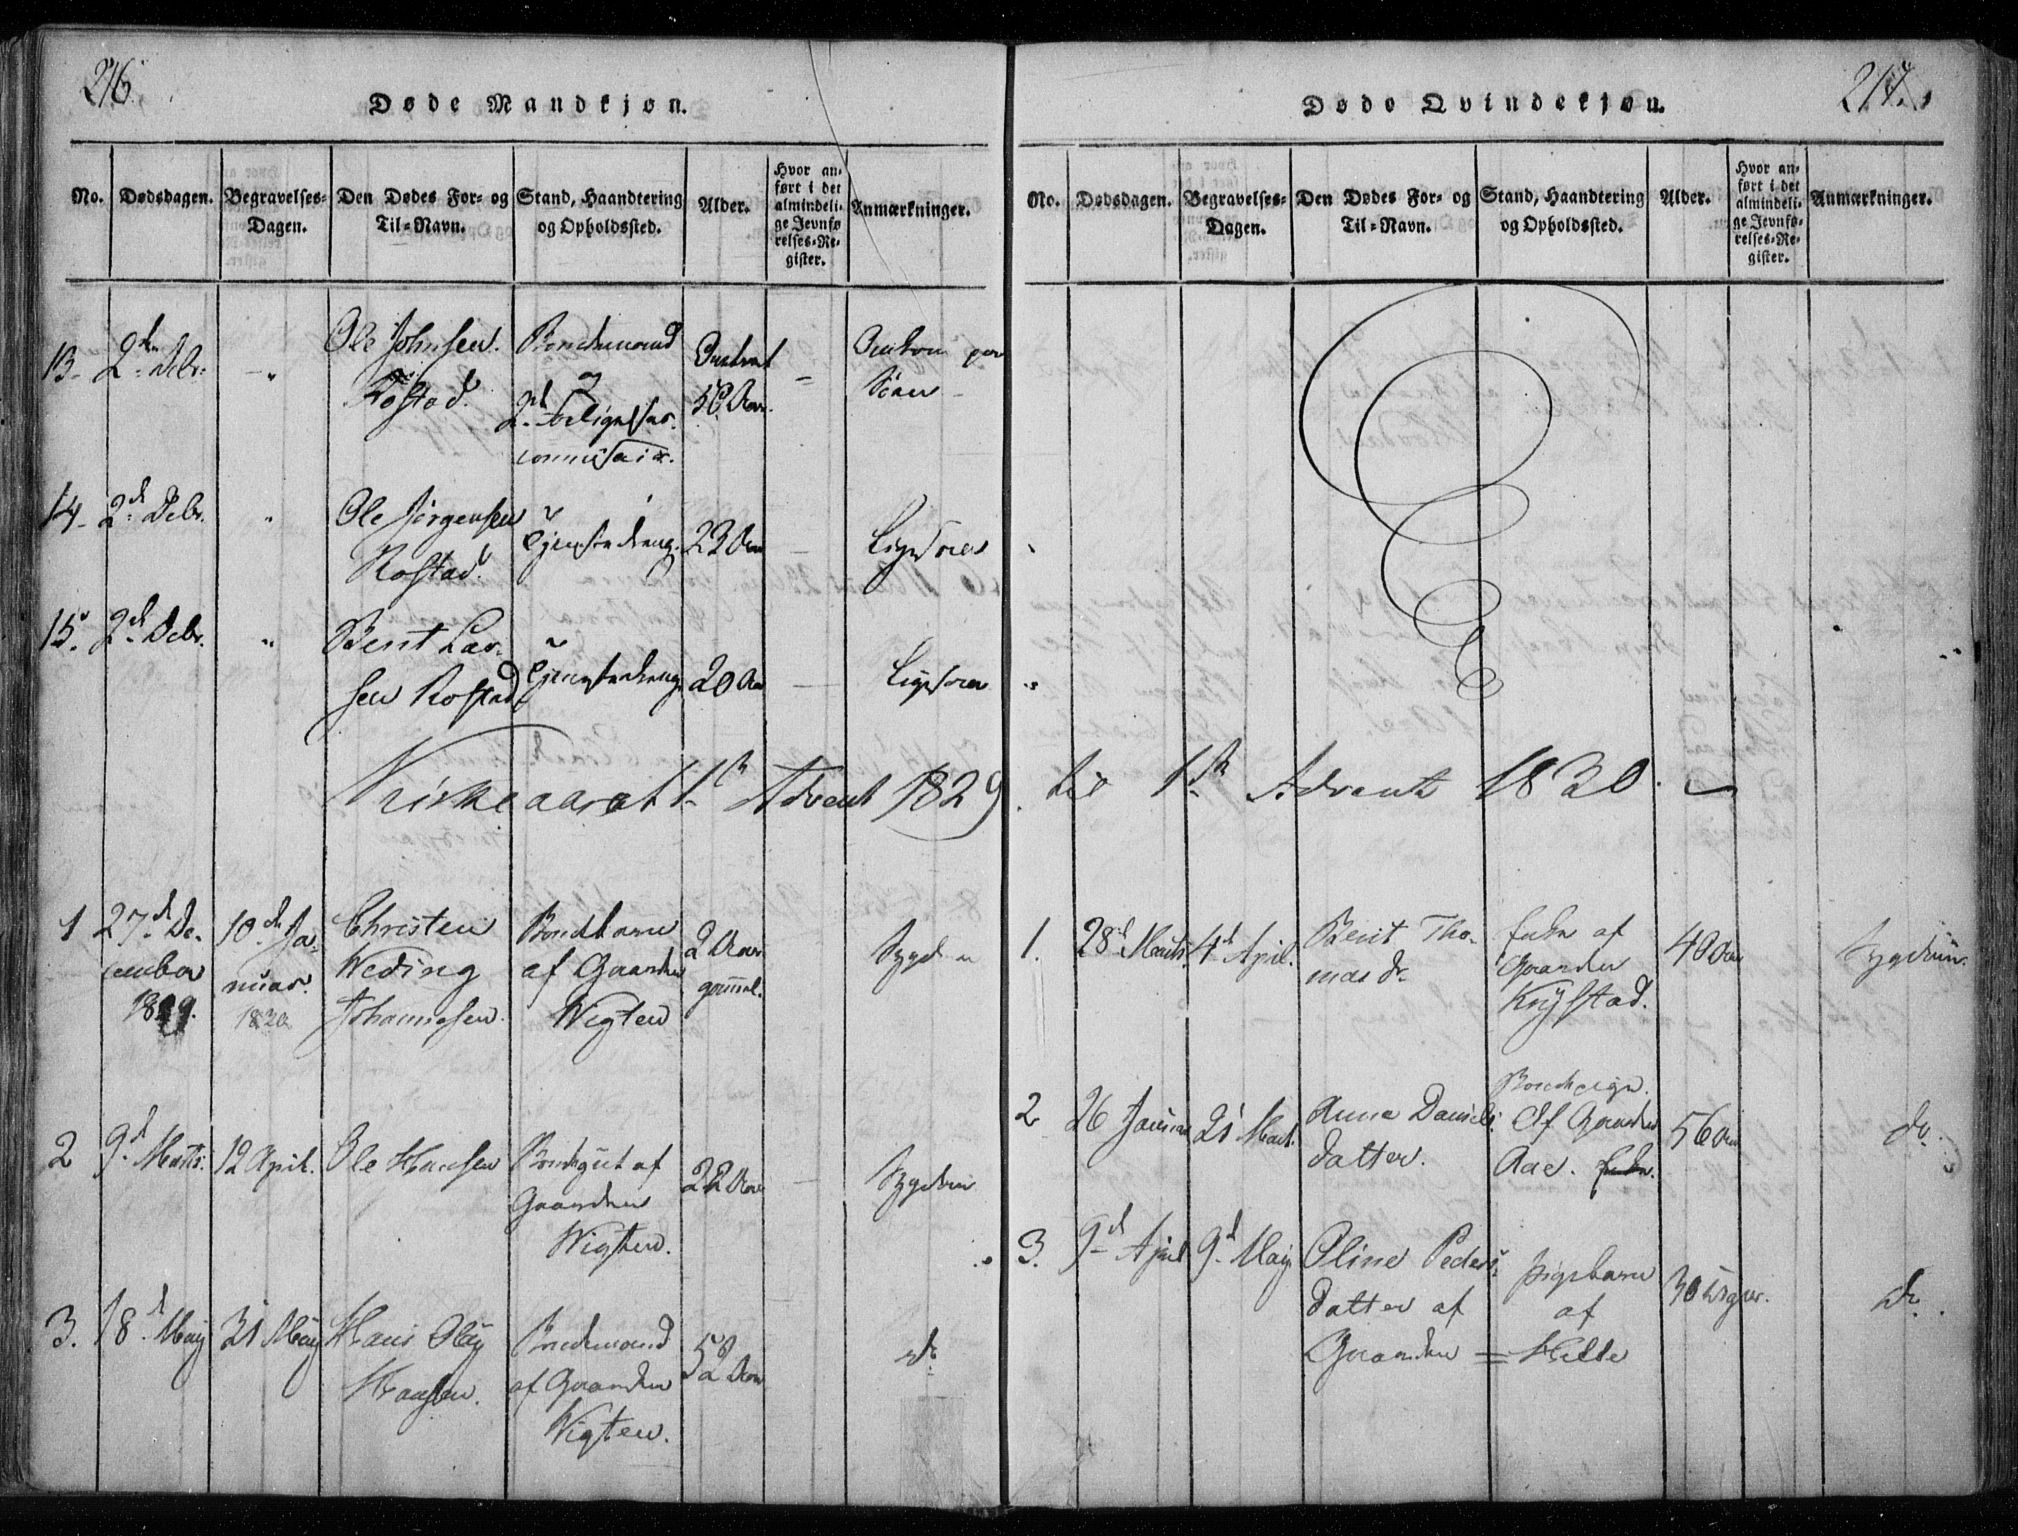 216.
Døde Mandkjøn.
No.
Dødsdagen.
Begravelses-
Dagen.
Den Dødes For- og
Til-Navn.
Stand, Haandtering
og Opholdssted.
Alder.
Hvor an-
ført i det
almindeli-
ge Jevnfø
relses-Re-
gister.
Anmærkninger.
13. 2den Debr. Ole Johnsen Bondemand
Rostad. og
50 Aar.
2d Forligelses-
commisair.
Omkom paa
Søen
14. 2d Debr. Ole Jørgensen
Rostad. Tjenstedreng. 22 Aar
Ligesaa
15. 2d Debr. Berit Lar-
sen Rostad Tjenstedreng. 20 Aar
Ligesaa
Kirkeaaret 1ste Advent 1829
1 27d De-
cember
1829.
10de Ja-
nuar.
1830
Christen
Weding
Johannesen.
Bondebarn
af Gaarden
Wigten
2 Aar
gammel.
Sygdom
2 9d Marts. 12 April. Ole Hansen
Bondegut af
Gaarden
Wigten.
22 Aar
Sygdom
3. 18d May 31 May Hans Olay
Hansen.
Bondemand
af Gaarden
Wigten.
52 Aar
do
217.
Døde Qvindekjøn.
No.
Dødsdagen.
Begravelses-
Dagen.
Den Dødes For- og
Til-Navn.
Stand, Haandtering
og Opholdssted.
Alder.
Hvor an-
ført i det
almindeli-
ge Jevnfø-
relses-Re-
gister.
Anmærkninger.
til 1ste Advent 1830.
1. 28d Marts. 4d April.
Berit Tho-
mas dr.
Enke af
Gaarden
Krystad.
40 Aar
Sygdom.
2 26 Januar 21 Mart.
Anne Daniels
datter.
Af Gaarden
Aae.
56 Aar
do.
3. 9d April 9d May
Oline Peders
datter af
Gaarden =
pigebarn
af
Helle
30 Uger.
do.